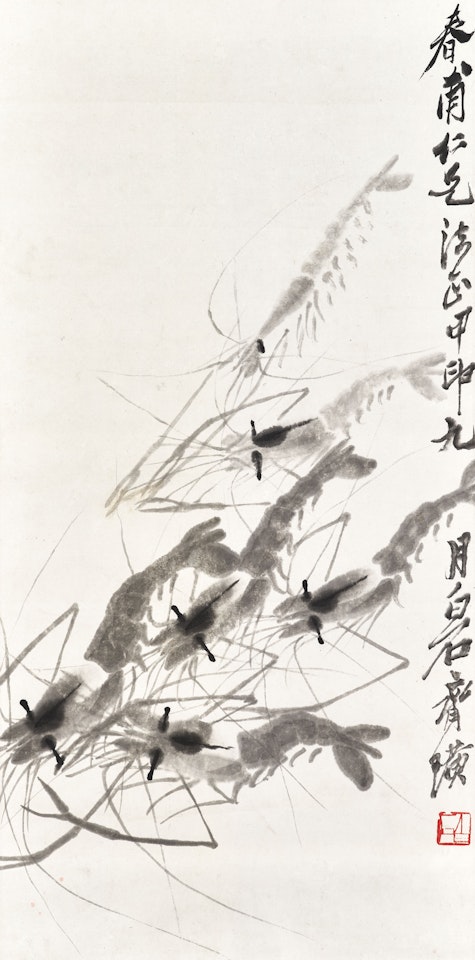 春甫仁兄法正甲申九
月白石齊璜